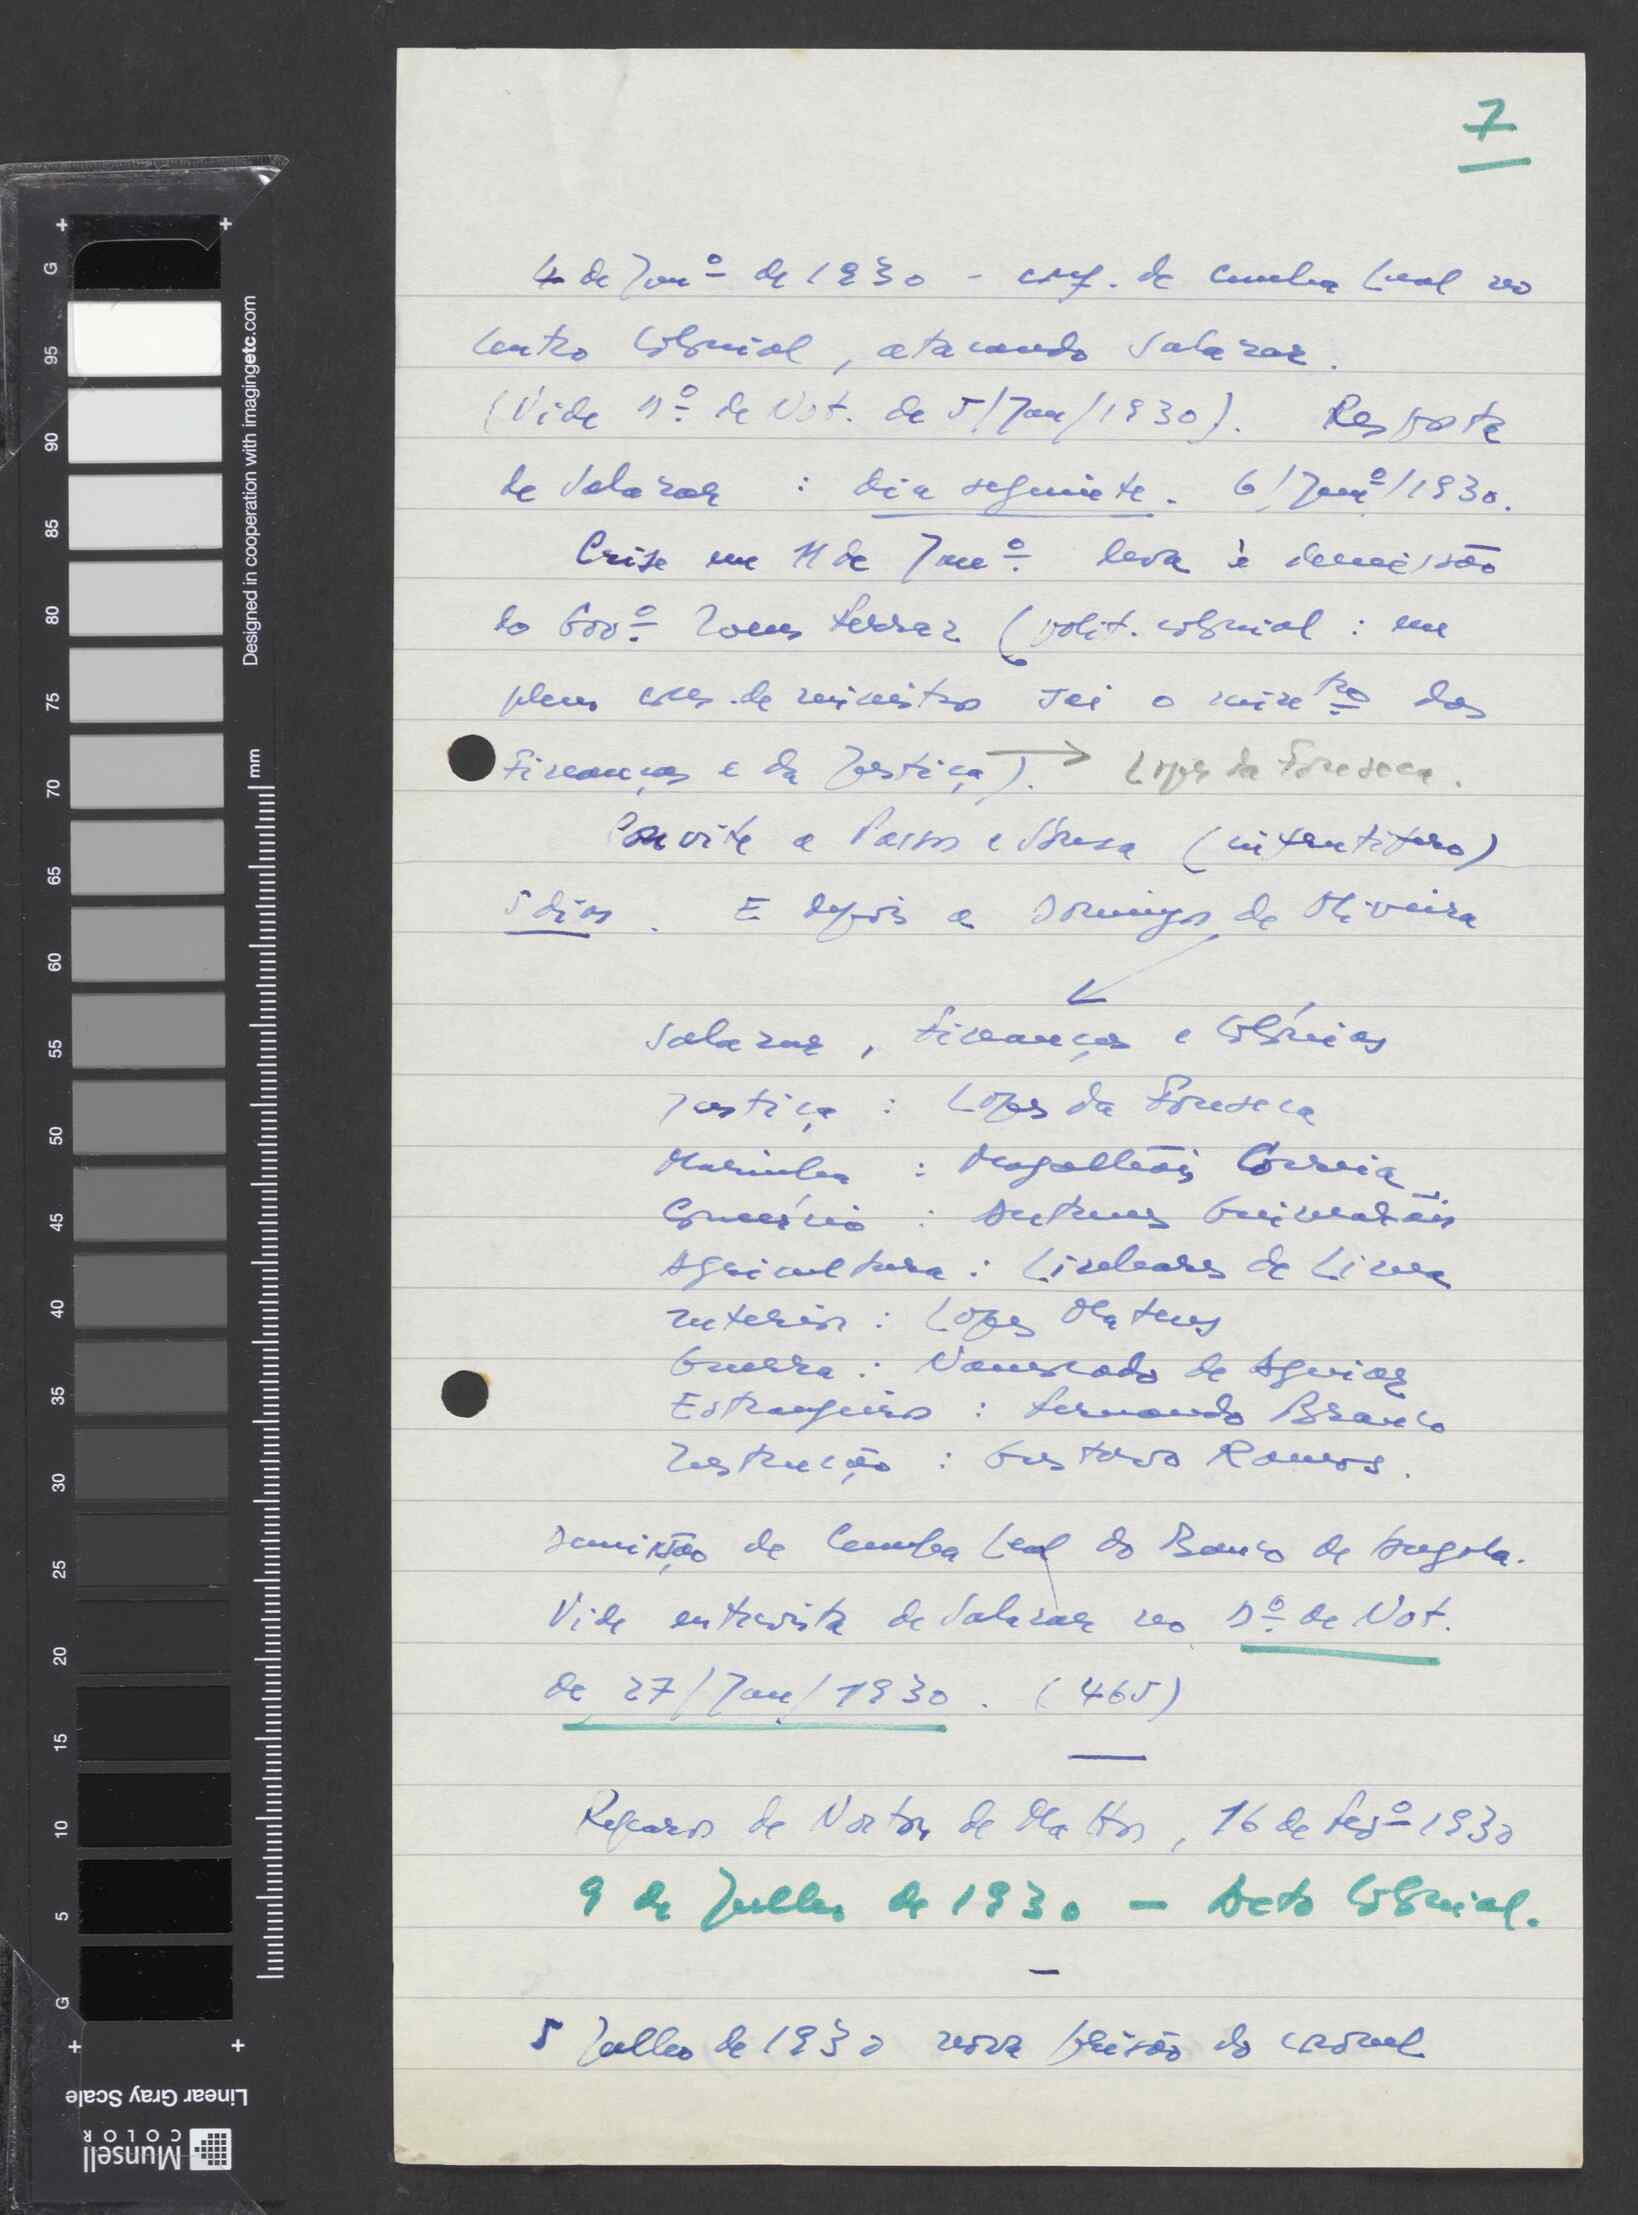 7
4 de Jan.º de 1930 - conf. de Cunha Leal no
Centro Colonial, atacando Salazar.
(Vide D.º de Not. de 5/Jan/1930). Resposta
de Salazar : dia seguinte. 6/Jan.º/1930.
Crise em 11 de Jan.º. leva à demissão
do Gov.º Ivens Ferraz (polit. colonial : em
pleno cons. de ministros sai o minº dos
Finanças e da Justiça). → Lopes da Fonseca.
Convite a Passos e Sousa (infrutífero)
5 dias. E depois a Domingos de Oliveira
Salazar, Finanças e Colónias
Justiça : Lopes da Fonseca
Marinha : Magalhãis Correia
Comércio : Antunes Guimarãis
Agricultura : Linhares de Lima
Interior : Lopes Mateus
Guerra : Namorado de Aguiar
Estrangeiros : Fernando Branco
Instrução : Gustavo Ramos.
Demissão de Cunha Leal do Banco de Angola.
Vide entrevista de Salazar no D.º de Not.
de 27/Jan/1930. (465)
Reparos de Norton de Mattos, 16 de Fevº 1930
9 de Julho de 1930 - Acto Colonial.
5 Julho de 1930 nova prisão do
G 95 90 85 80 75 70 65 60 55 50 45 40 35 30 25 20 15 10 5 G
mm
Designed in cooperation with imagingetc.com
Linear Gray Scale
Munsell
COLOR